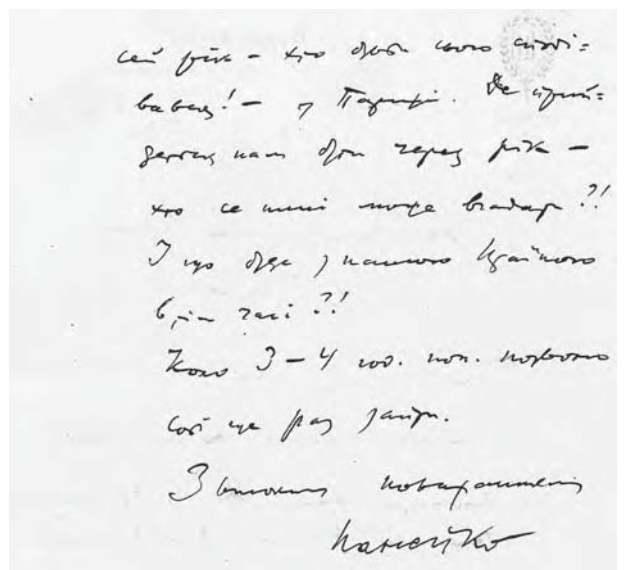 сей рік – хто був того споді=
вавсь! – у Парижі. Де прий=
деться нам бути через рік –
хто се нині може вгадати?!
І що буде з нашого Країного
в тім часі?!
Коло 3–4 год. поп. позволю
собі ще раз зайти.
З високим поважанням
Панейко